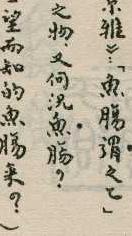 雅》：「魚腸謂之乙」
之物，又何況魚腸？
望而知的魚腸？）